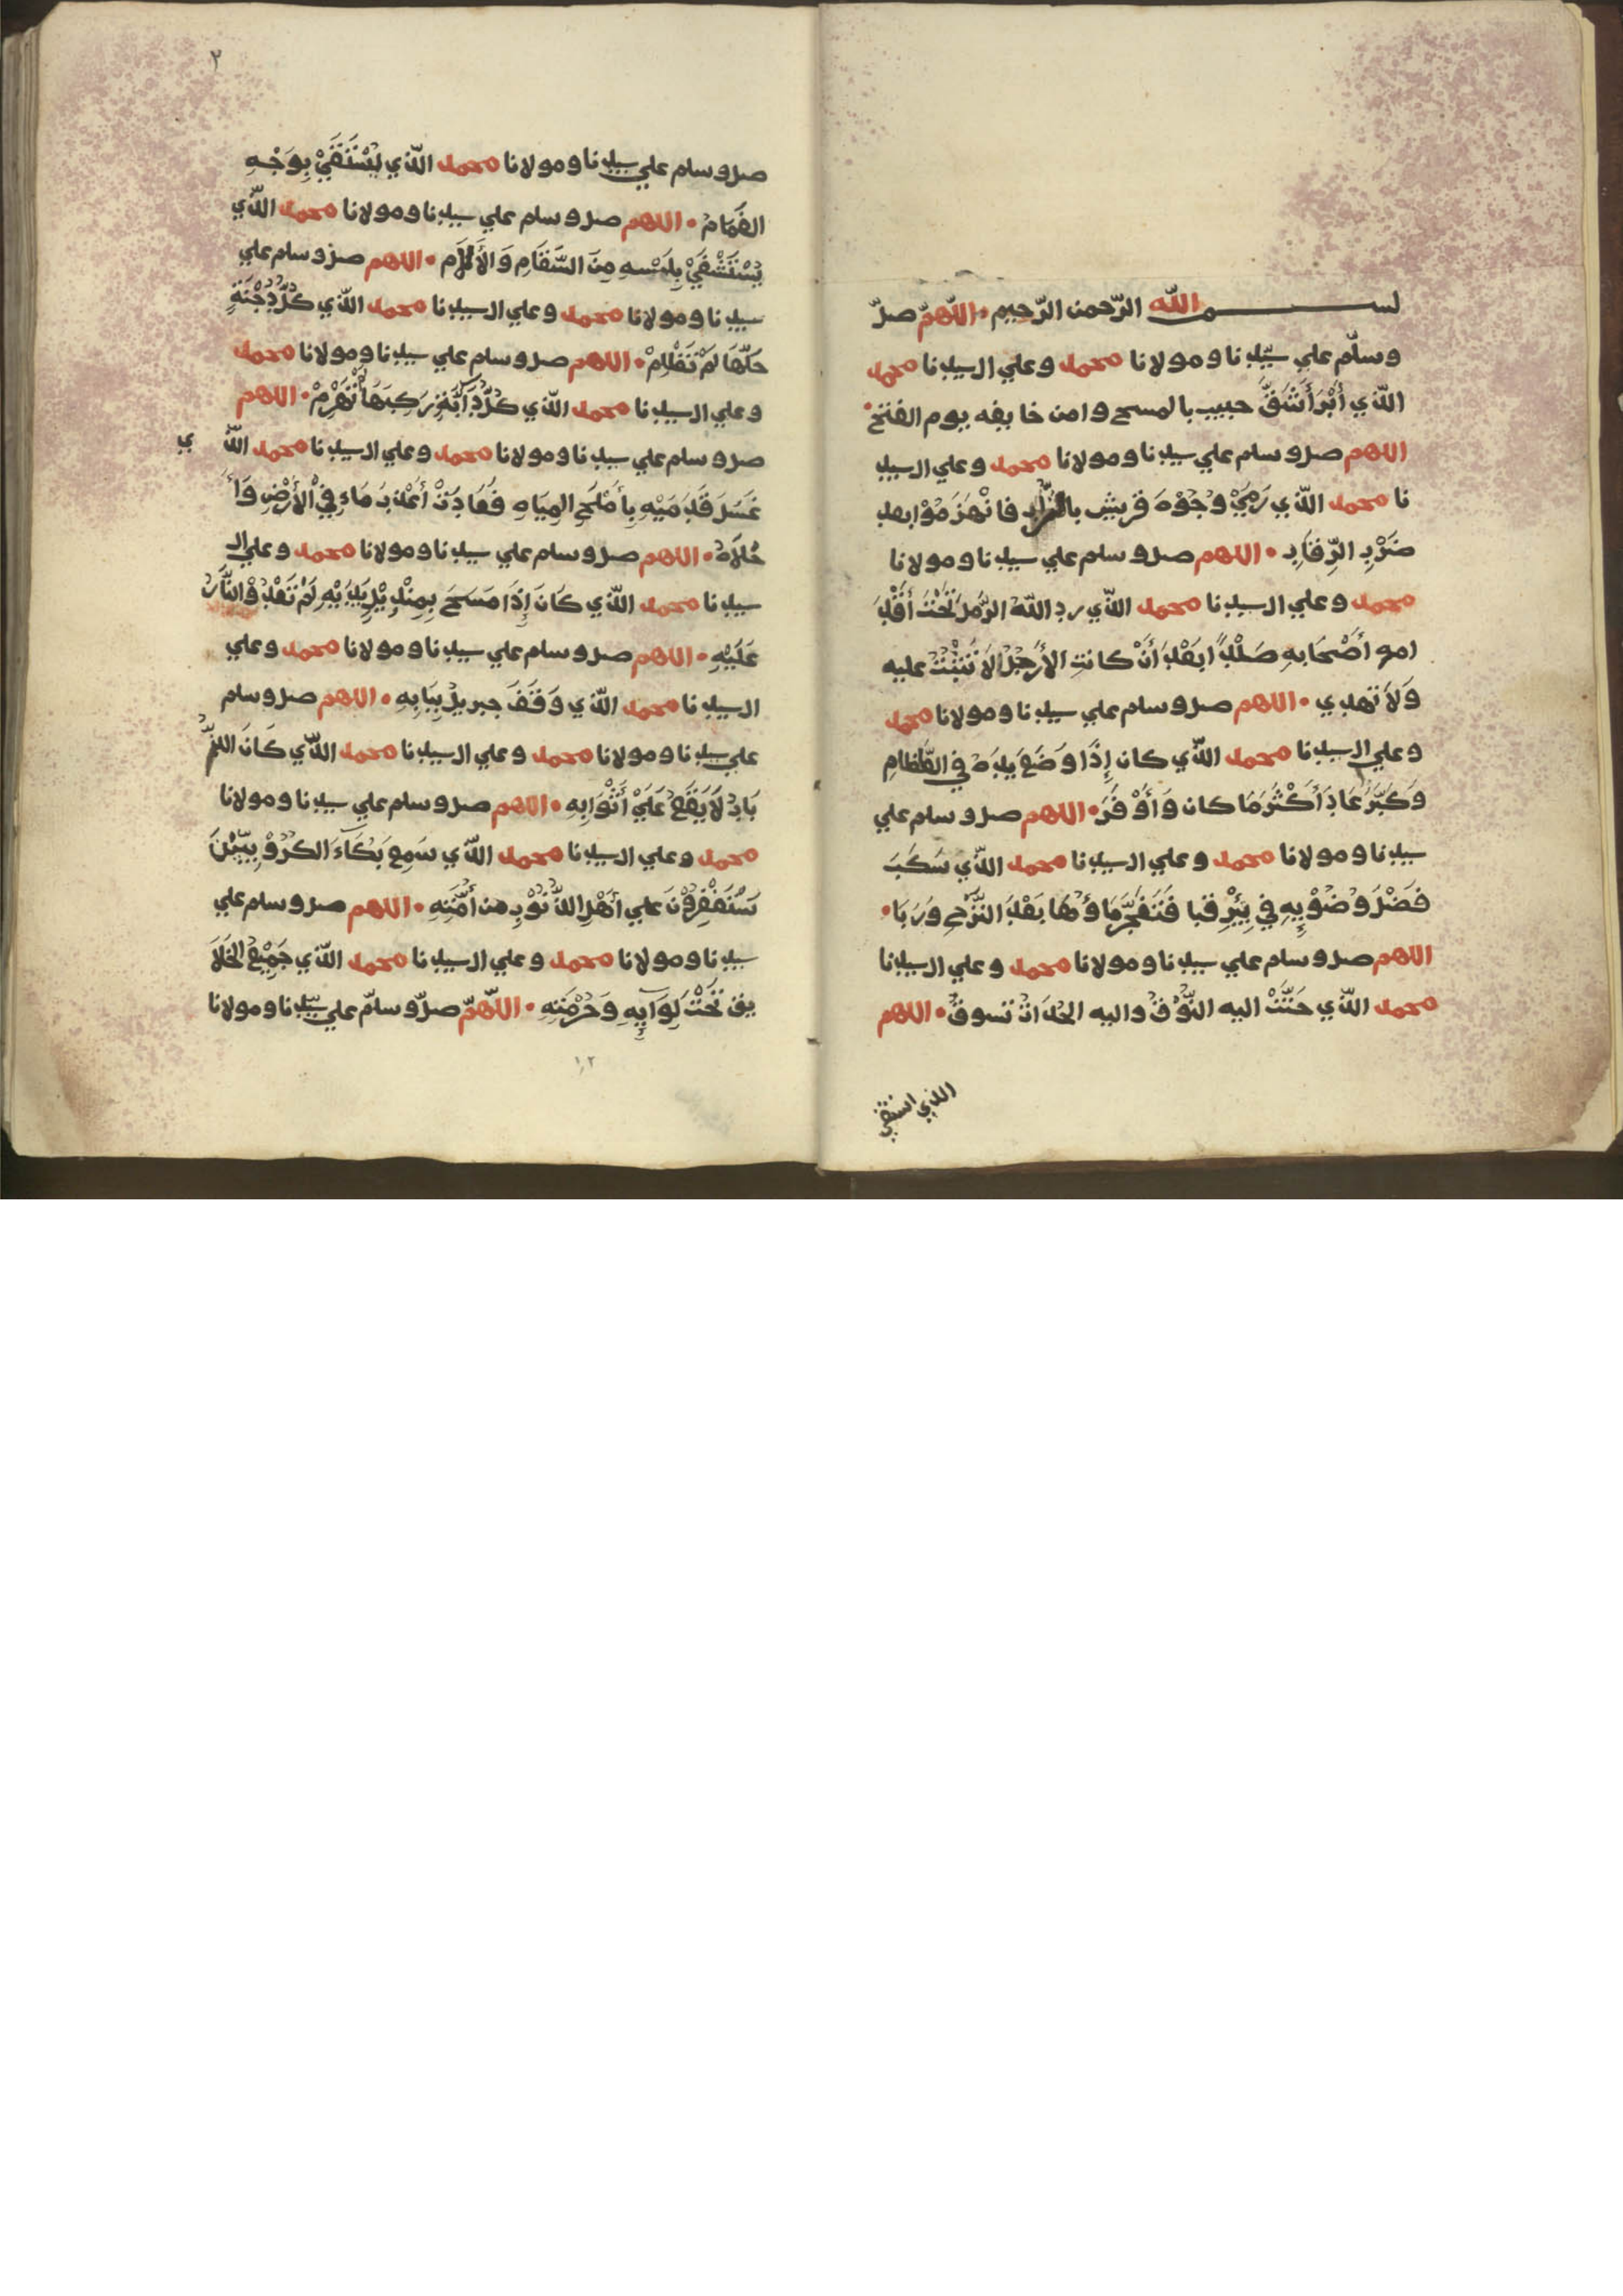 بســـــــم الله الرّحمن الرّحيم • اللّهمّ صلّ
وسلّم علي سيّدنا ومولانا محمد وعلي ال سيدنا محمد
الذّي أَبْرَأَ شَقَّ حبيب بالمسح وامن خايفه يوم الفتح •
اللهم صل وسلم علي سيدنا ومولانا محمد وعلي ال سيد
نا محمد الذّي رَمَيْ وُجُوْهَ قريش فانْهَزَمُوْا بعد
ضَرْبِ الرِّقَابِ • اللهم صل وسلم علي سيدنا ومولانا
محمد وعلي ال سيدنا محمد الذّي رد اللّهُ الرَّمْلَ تَحْتَ أَقْدَ
امه وأَصْحَابِهِ صَلْباً بَعْدَ أَنْ كانتِ الأَرْجُلُ لاَ تَثْبُتُ عليه
وَلاَ تهدي • اللهم صل وسلم علي سيدنا ومولانا محمد
وعلي ال سيدنا محمد الذّي كان إِذَا وَضَعَ يَدَهُ في الطَّعَامِ
وَكَبَّرَ عَادَ أَكْثَرَ مَا كان وَأَوْفَرَ • اللهم صل وسلم علي
سيدنا ومولانا محمد وعلي ال سيدنا محمد الذّي سَكَبَ
فَضْلَ وُضُوْيِهِ في بِئْرِ قبا فَتَفَجَّرَ مَاؤُهَا بَعْدَ النَّزْحِ وَرَبَا •
اللهم صل وسلم علي سيدنا ومولانا محمد وعلي ال سيدنا
محمد الذّي حَنَّتْ اليه النُّوْقُ واليه الحُدَاتُ تسوقُ • اللهم
صل وسلم علي سيدنا ومولانا محمد الذّي يُسْتَسْقَيْ بِوَجْهِهِ
الغَمَامُ • اللهم صل وسلم علي سيدنا ومولانا محمد الذّي
يُسْتَشْفَيْ بِلَمْسِهِ مِنَ السَّقَامِ وَالأَلآمِ • اللهم صل وسلم علي
سيدنا ومولانا محمد وعلي ال سيدنا محمد الذّي كُلُّ دُجْنَةٍ
حَلَّهَا لَمْ تَظْلِمْ • اللهم صل وسلم علي سيدنا ومولانا محمد
وعلي ال سيدنا محمد الذّي كُلُّ دَآبَّةٍ رَكِبَهَا لَمْ تَهْرِمْ • اللهم
صل وسلم علي سيدنا ومولانا محمد وعلي ال سيدنا محمد الذّي
غَسَلَ قَدَمَيْهِ بِأَمْلَحِ المِيَاهِ فَعَادَتْ أَعْذَبَ مَاءٍ فِيْ الأَرْضِ وَأَ
حْلاَهُ • اللهم صل وسلم علي سيدنا ومولانا محمد وعلي ال
سيدنا محمد الذّي كَانَ إِذَا مَسَحَ بِمِنْدِيْلٍ يَدَيْهِ لَمْ تَعْدُ النَّارُ
عَلَيْهِ • اللهم صل وسلم علي سيدنا ومولانا محمد وعلي
ال سيدنا محمد الذّي وَقَفَ جبريلُ بِبَابِهِ • اللهم صل وسلم
علي سيدنا ومولانا محمد وعلي ال سيدنا محمد الذّي كَانَ الذُّ
بَابُ لاَ يَقَعُ عَلَيْ أَثْوَابِهِ • اللهم صل وسلم علي سيدنا ومولانا
محمد وعلي ال سيدنا محمد الذّي سَمِعَ بُكَآءَ الكَرُوْبِيِّيْنَ
يَسْتَغْفِرُوْنَ علي أَهْلِ الذُّنُوْبِ من أُمَّتِهِ • اللهم صل وسلم علي
سيدنا ومولانا محمد وعلي ال سيدنا محمد الذّي جَمِيْعُ الخَلاَ
يق تَحْتَ لِوَآيِهِ وَحُرْمَتِهِ • اللّهمّ صلّ وسلّم علي سيّدنا ومولانا